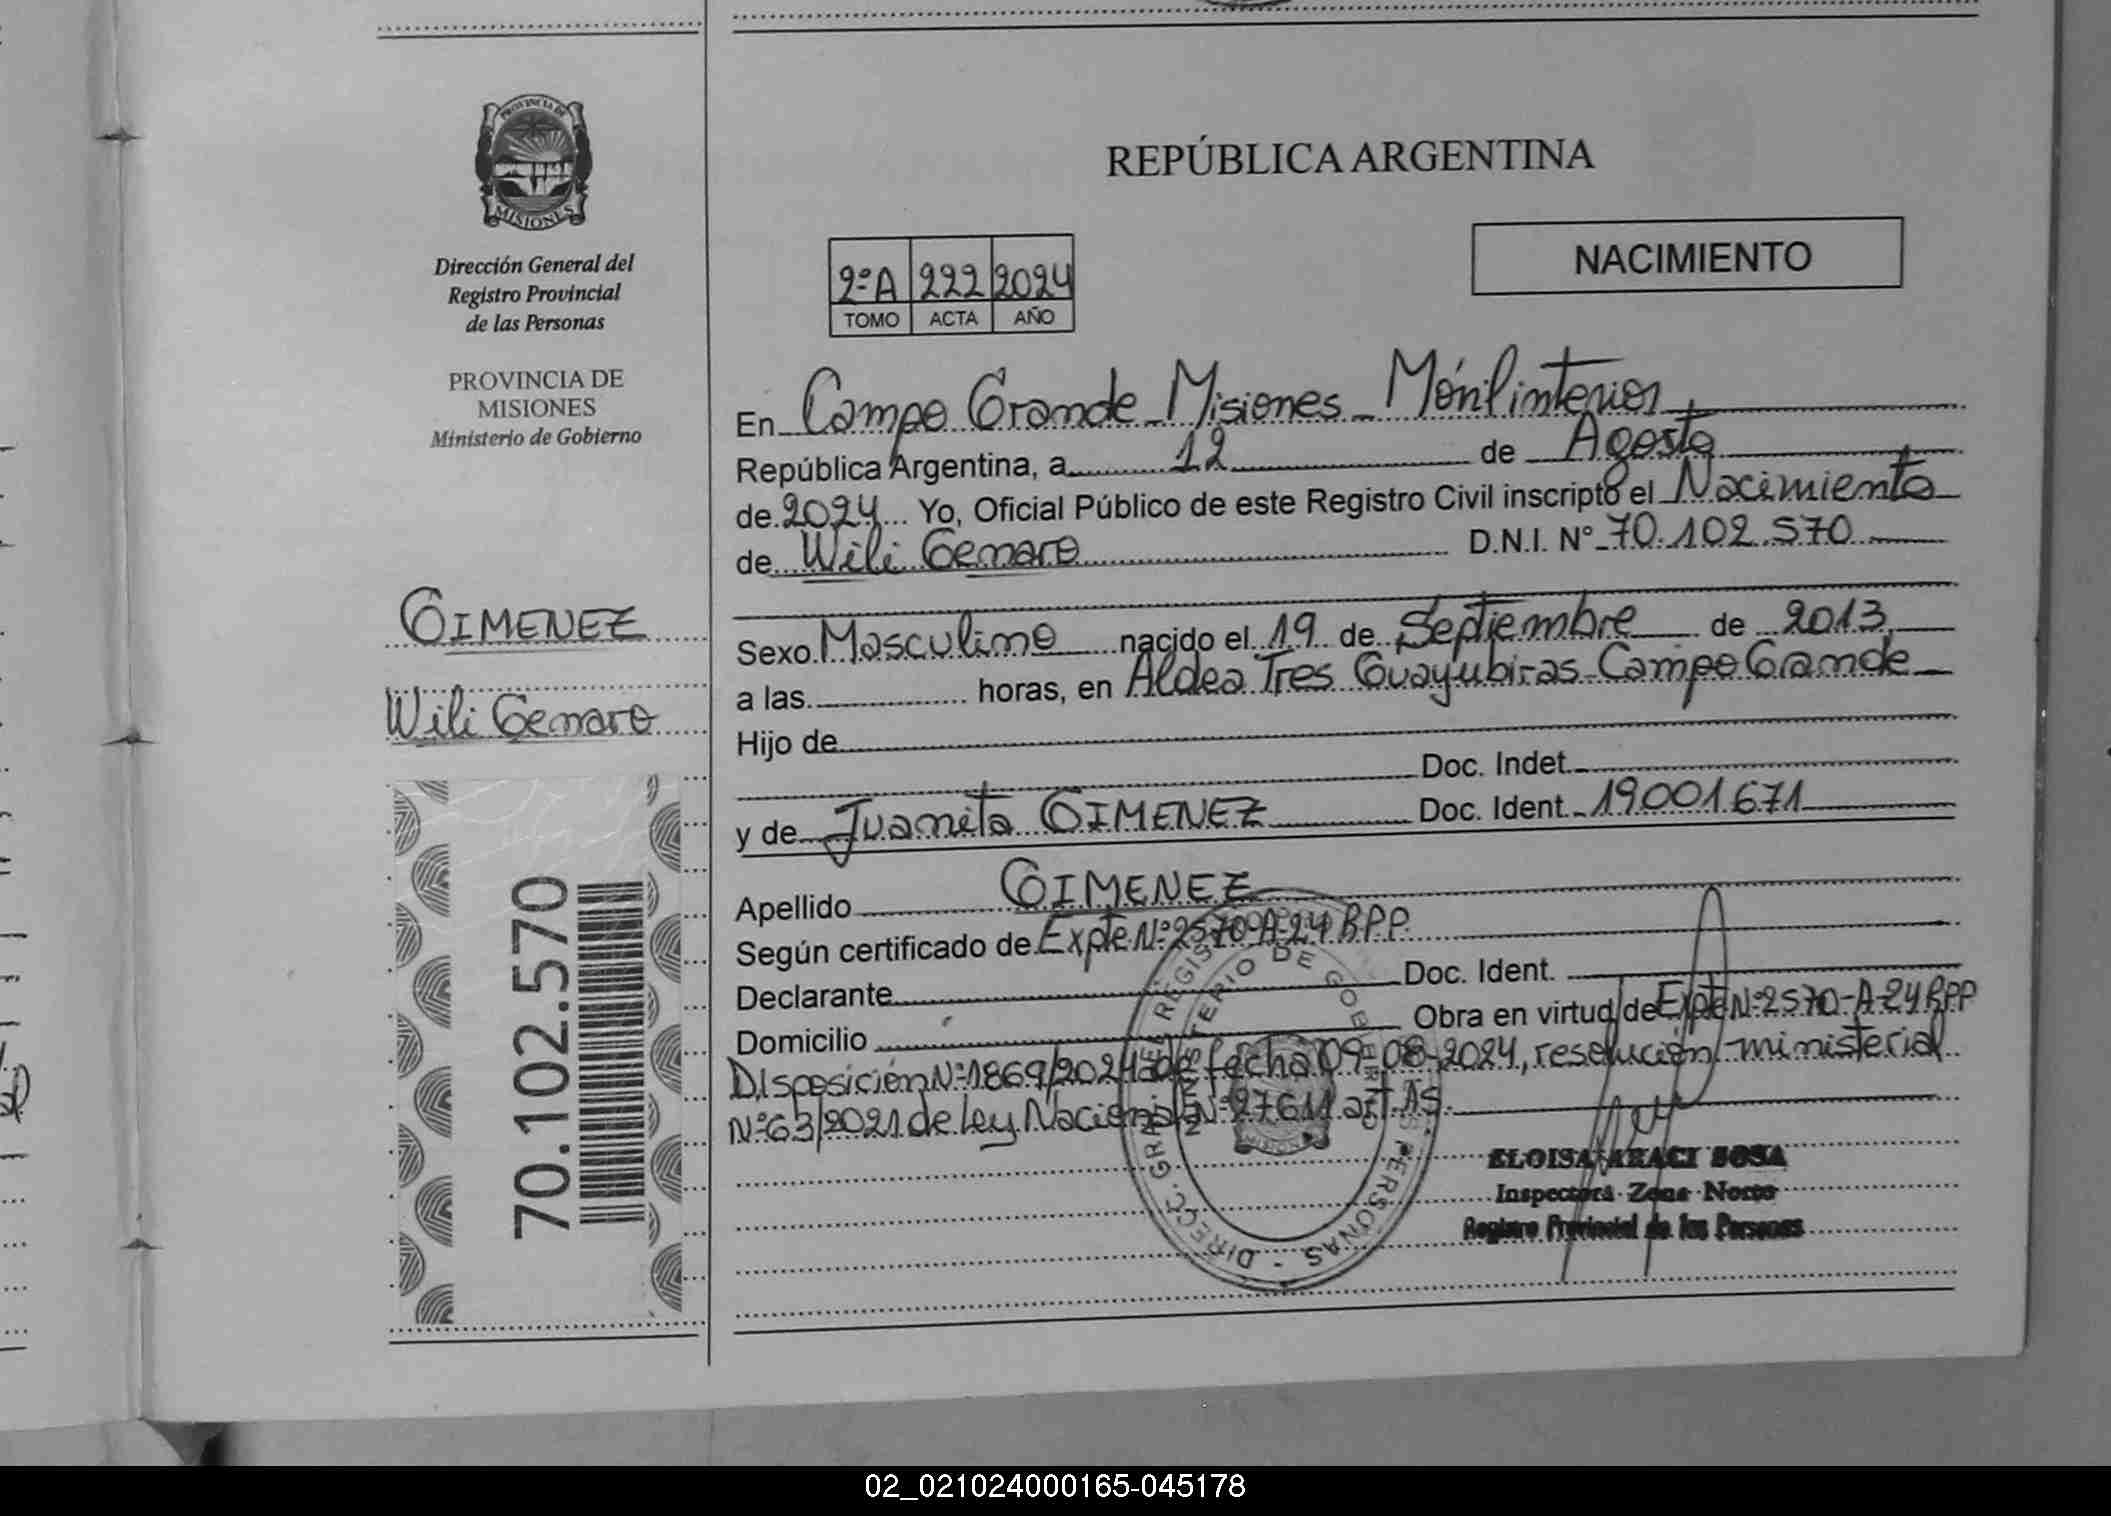 PROVINCIA DE
MISIONES
Dirección General del
Registro Provincial
de las Personas
PROVINCIA DE
MISIONES
Ministerio de Gobierno
GIMENEZ
Wili Genaro
70.102.570
REPÚBLICA ARGENTINA
NACIMIENTO
2ºA 222 2024
TOMO ACTA AÑO
En Campo Grande Misiones
República Argentina, a 12 de Agosto
de 2024 Yo, Oficial Público de este Registro Civil inscripto el Nacimiento
de Wili Genaro D.N.I. Nº 70.102.570
Sexo Masculino nacido el 19 de Septiembre de 2013
a las horas, en Aldea Tres Guayubiras-Campo Grande
Hijo de
Doc. Indet.
y de Juanita GIMENEZ Doc. Ident. 19001671
Apellido GIMENEZ
Según certificado de Expte Nº 2570-A-24 R.P.P.
Declarante Doc. Ident.
Domicilio Obra en virtud de Expte Nº 2570-A-24 RPP
Disposición Nº 1869/2024 de fecha 09-08-2024, resolución ministerial
Nº 63/2021 de Ley Nacional Nº 27611 art. 
ELOISA ARACI SOSA
Inspectora Zona Norte
Registro Provincial de las Personas
02_021024000165-045178